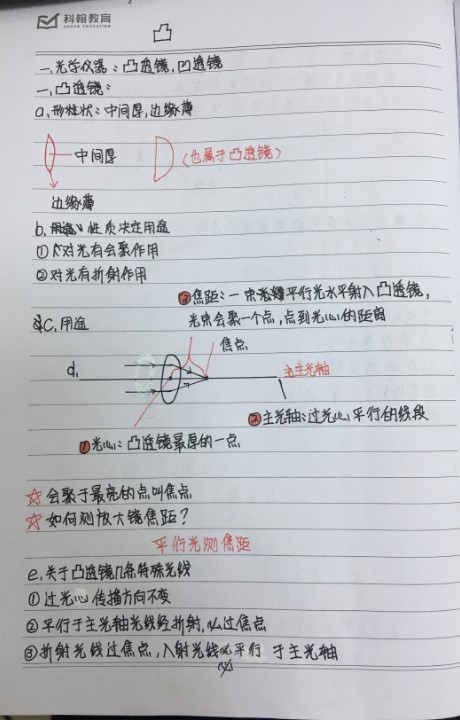 科翰教育
KEHAN EDUCATION
凸
一、光学仪器：凸透镜，凹透镜
一、凸透镜：
a.形状：中间厚，边缘薄
中间厚
（也属于凸透镜）
边缘薄
b.性质决定用途
①对光有会聚作用
②对光有折射作用
③焦距：一束平行光水平射入凸透镜，
光束会聚一个点，点到光心的距离
C.用途
焦点
d.
主光轴
②主光轴：过光心，平行的线段
①光心：凸透镜最厚的一点
☆会聚于最亮的点叫焦点
☆如何测放大镜焦距？
平行光测焦距
e.关于凸透镜几条特殊光线
①过光心传播方向不变
②平行于主光轴光线经折射，必过焦点
③折射光线过焦点，入射光线必平行于主光轴